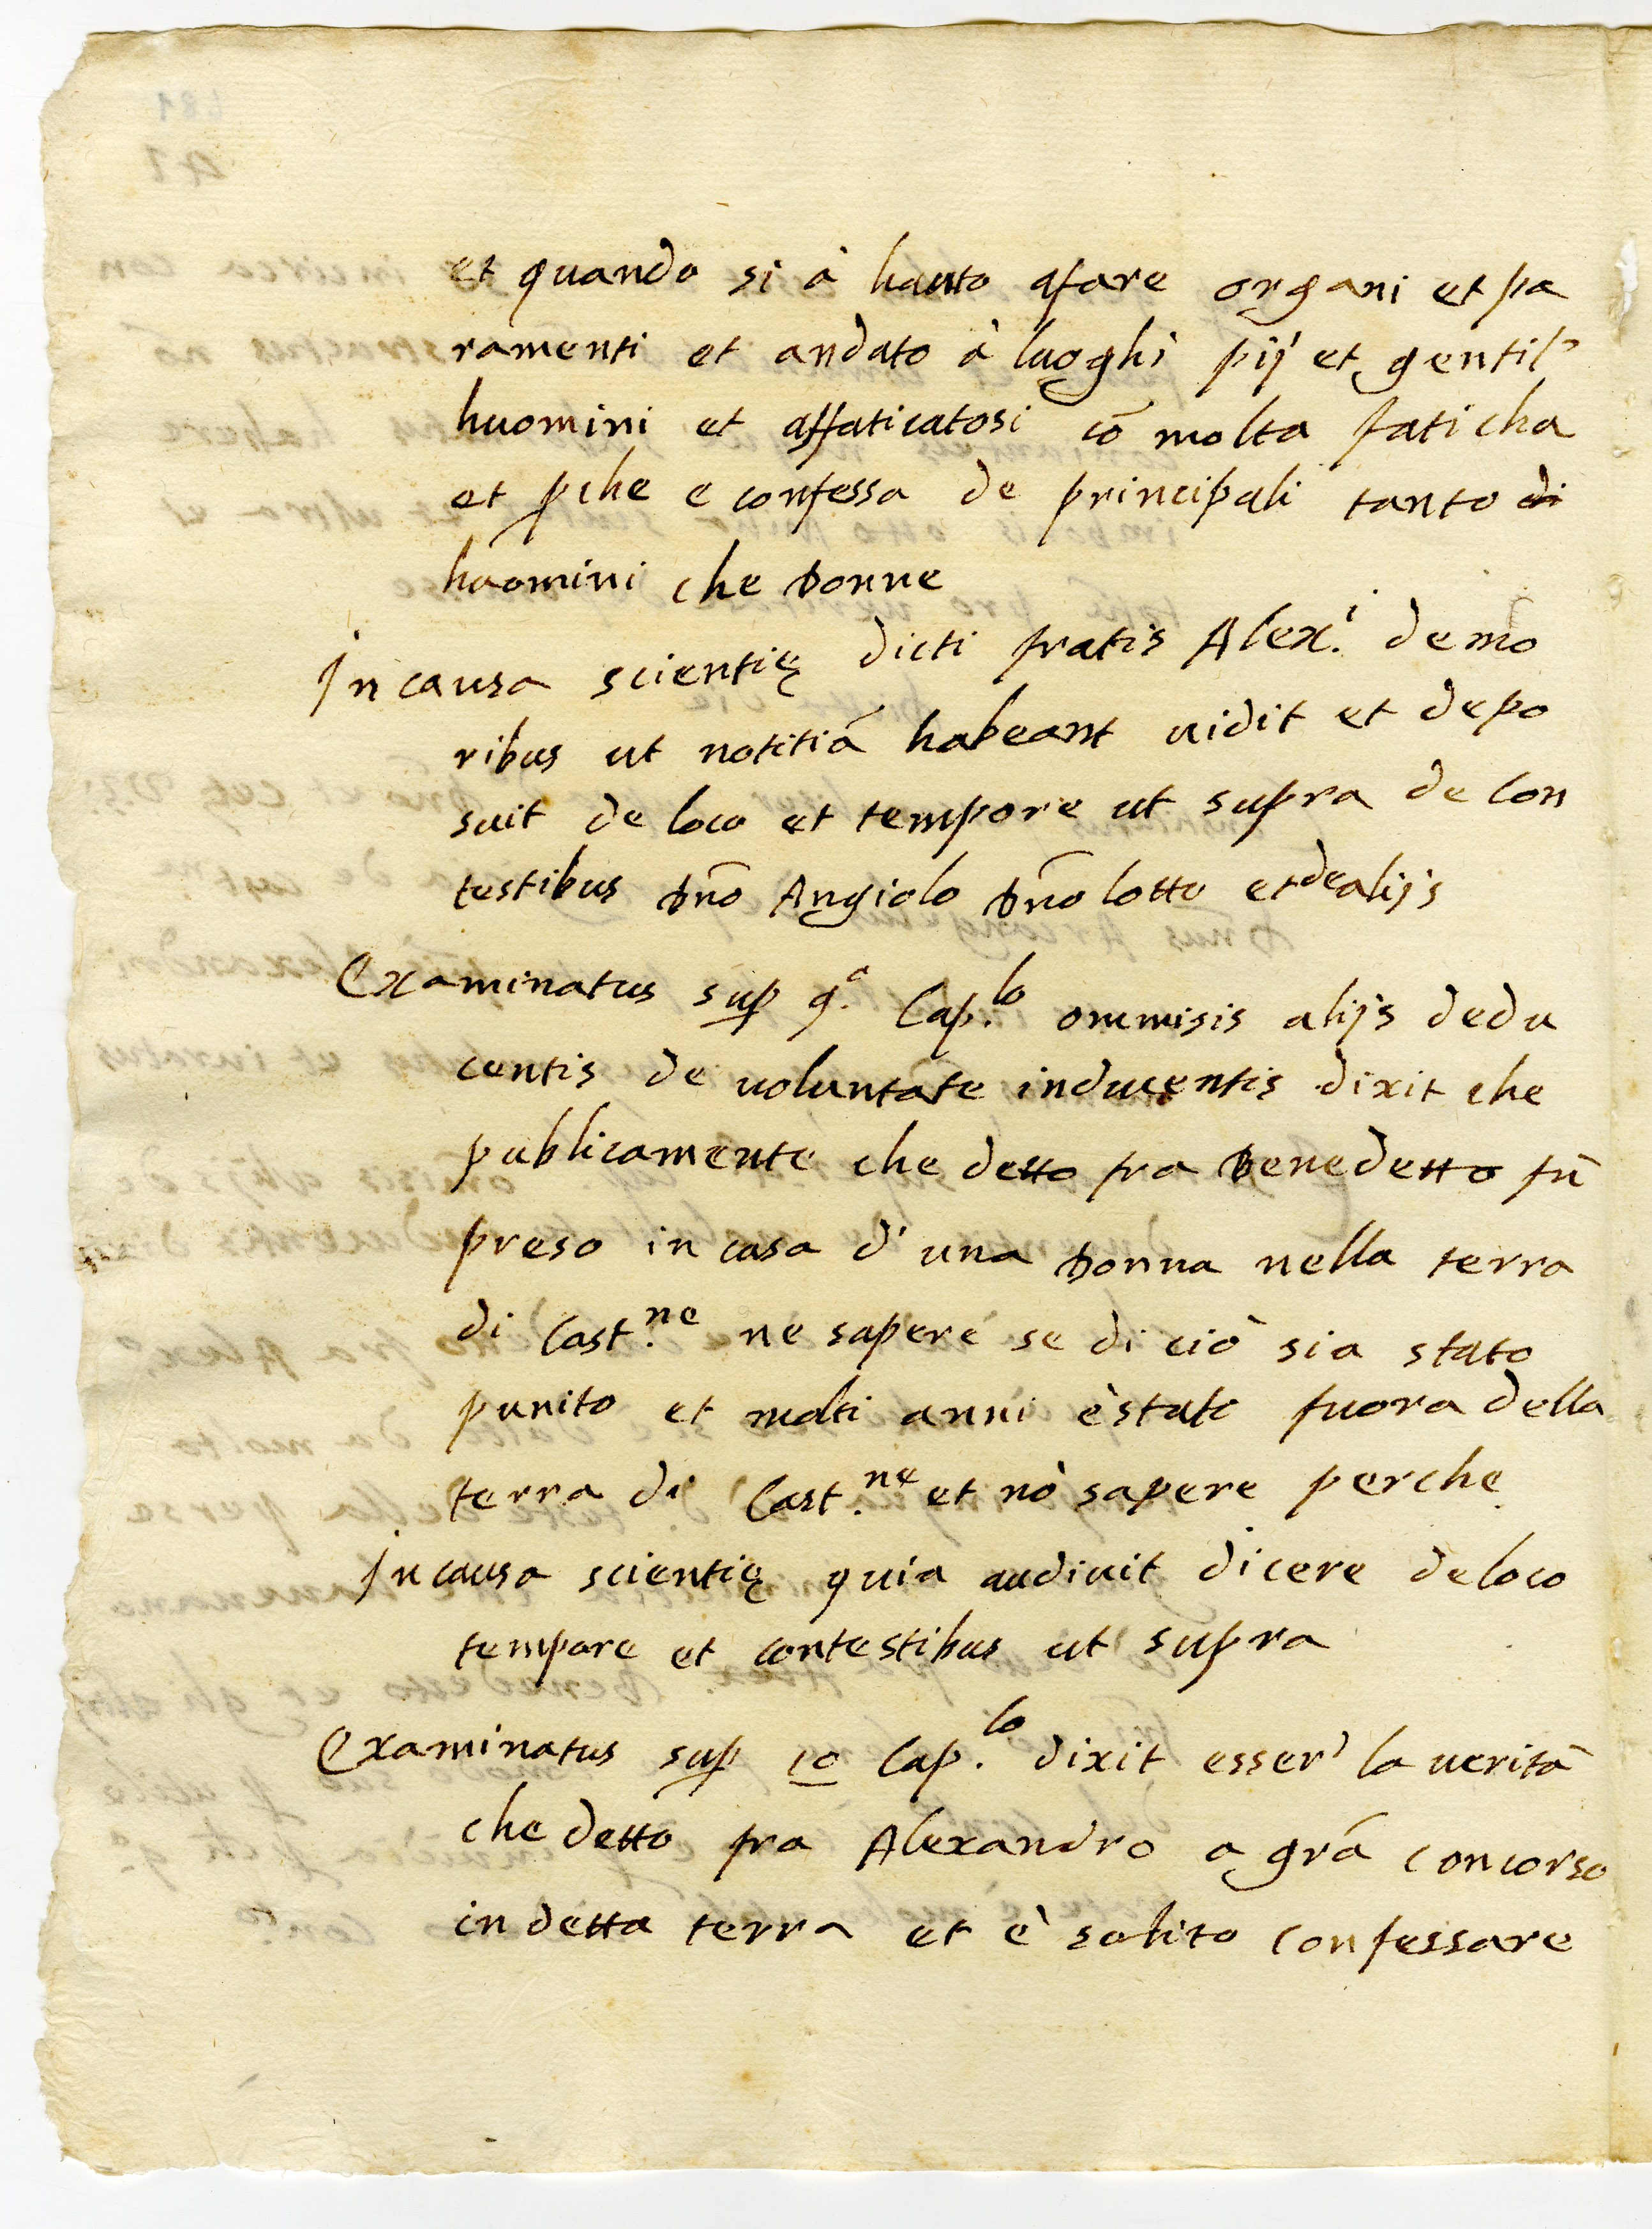 et quando si à hauto afare organi et pa
ramenti et andato à luoghi pij et gentil'
huomini et affaticatosi cō molta faticha
et pche e confessa de principali tanto di
huomini che Donne
In causa scientię dicti fratis Alex.i de mo
ribus ut notitiā habeant uidit et depo
suit de loco et tempore ut supra de con
testibus Dnō Angiolo Dnō lotto et de alijs
Examinatus sup 9.o Cap.lo ommisis alijs dedu
centis de uoluntate inducentis dixit che
publicamente che detto fra Benedetto fù
preso in casa d'una Donna nella terra
di Cast.ne ne sapere se di ciò sia stato
punito et molti anni è stato fuora della
terra di Cast.ne et nō sapere perche
In causa scientię quia audiuit dicere de loco
tempore et contestibus ut supra
Examinatus sup 10 Cap.lo dixit esser' la uerità
che detto fra Alexandro a grā concorso
in detta terra et è solito confessare